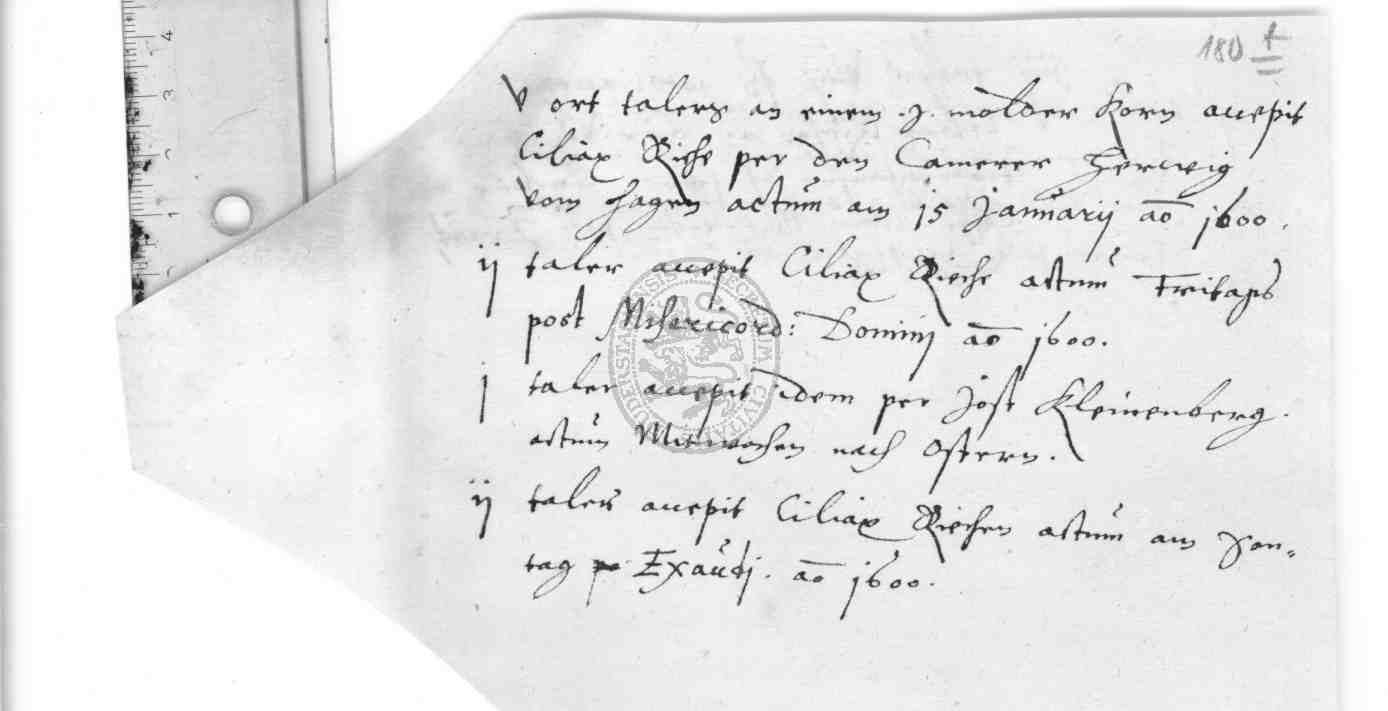 180 t
v ort talers an einem .j. molder Korn accepit
Ciliax Riche per den Camerer Herwig
vom Hagen actum am 15 Januarij ao 1600.
ij taler accepit Ciliax Rieche actum Freitags
post Misericord: Domini ao 1600.
j taler accepit idem per Jost Kleinenberg.
actum Mitwochen nach Ostern.
ij taler accepit Ciliax Riechen actum am Son=
tag Exaudi. ao 1600.
4
3
2
1